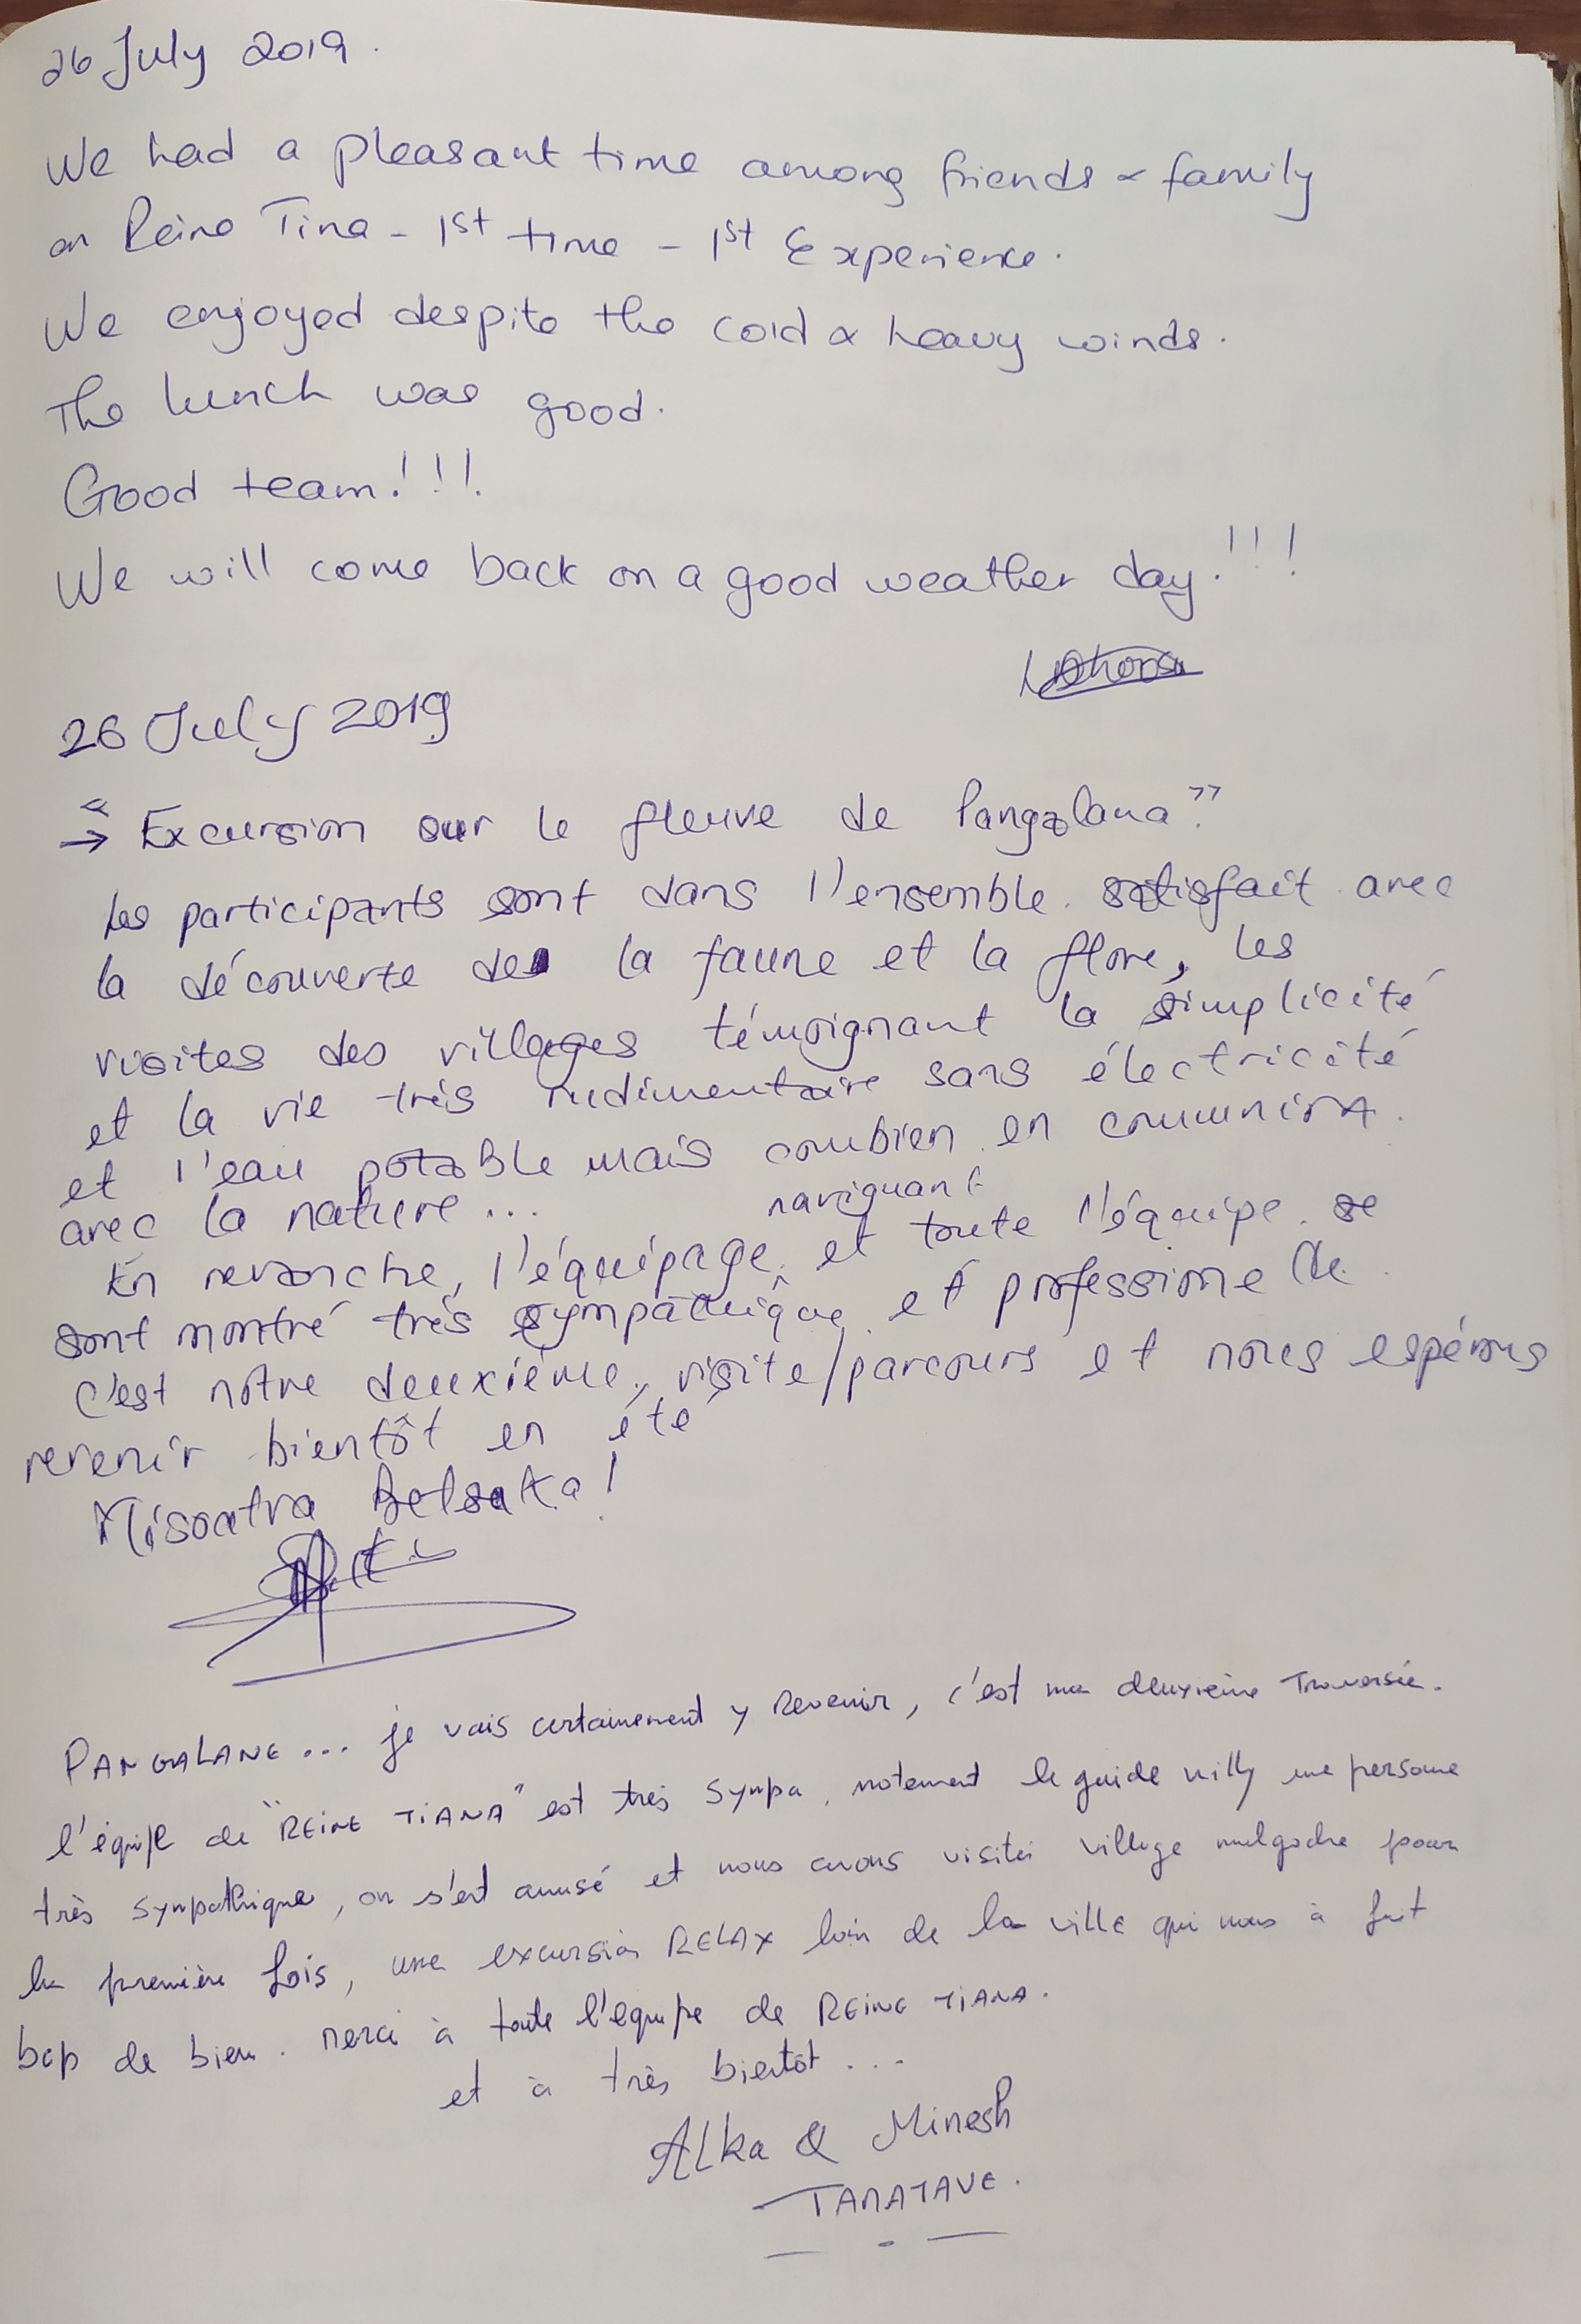 26 July 2019.
We had a pleasant time among friends & family
on Reine Tina - 1st time - 1st Experience.
We enjoyed despite the cold & heavy winds.
The lunch was good.
Good team!!!
We will come back on a good weather day!!!
26 July 2019
→ "Excursion sur le fleuve de Pangalana"
Les participants sont dans l'ensemble satisfait avec
la découverte de la faune et la flore, les
visites des villages témoignant la simplicité
et la vie très rudimentaire sans électricité
et l'eau potable mais combien en communion
avec la nature...
naviguant
En revanche, l'équipage et toute l'équipe se
sont montré très sympathique et professionelle.
C'est notre deuxième, visite/parcours et nous espérons
revenir bientôt en été
Misoatra Betsaka!
PANGALANE... je vais certainement y Revenir, c'est ma deuxieme Traversée.
l'équipe de "REINE TIANA" est très sympa, notement le guide willy une persone
très sympathique, on s'est amusé et nous avons visités village malgache pour
la première fois, une excursion RELAX loin de la ville qui nous à fait
bcp de bien. merci à toute l'equipe de REINE TIANA.
et à très bientôt...
Alka & Minesh
TAMATAVE.